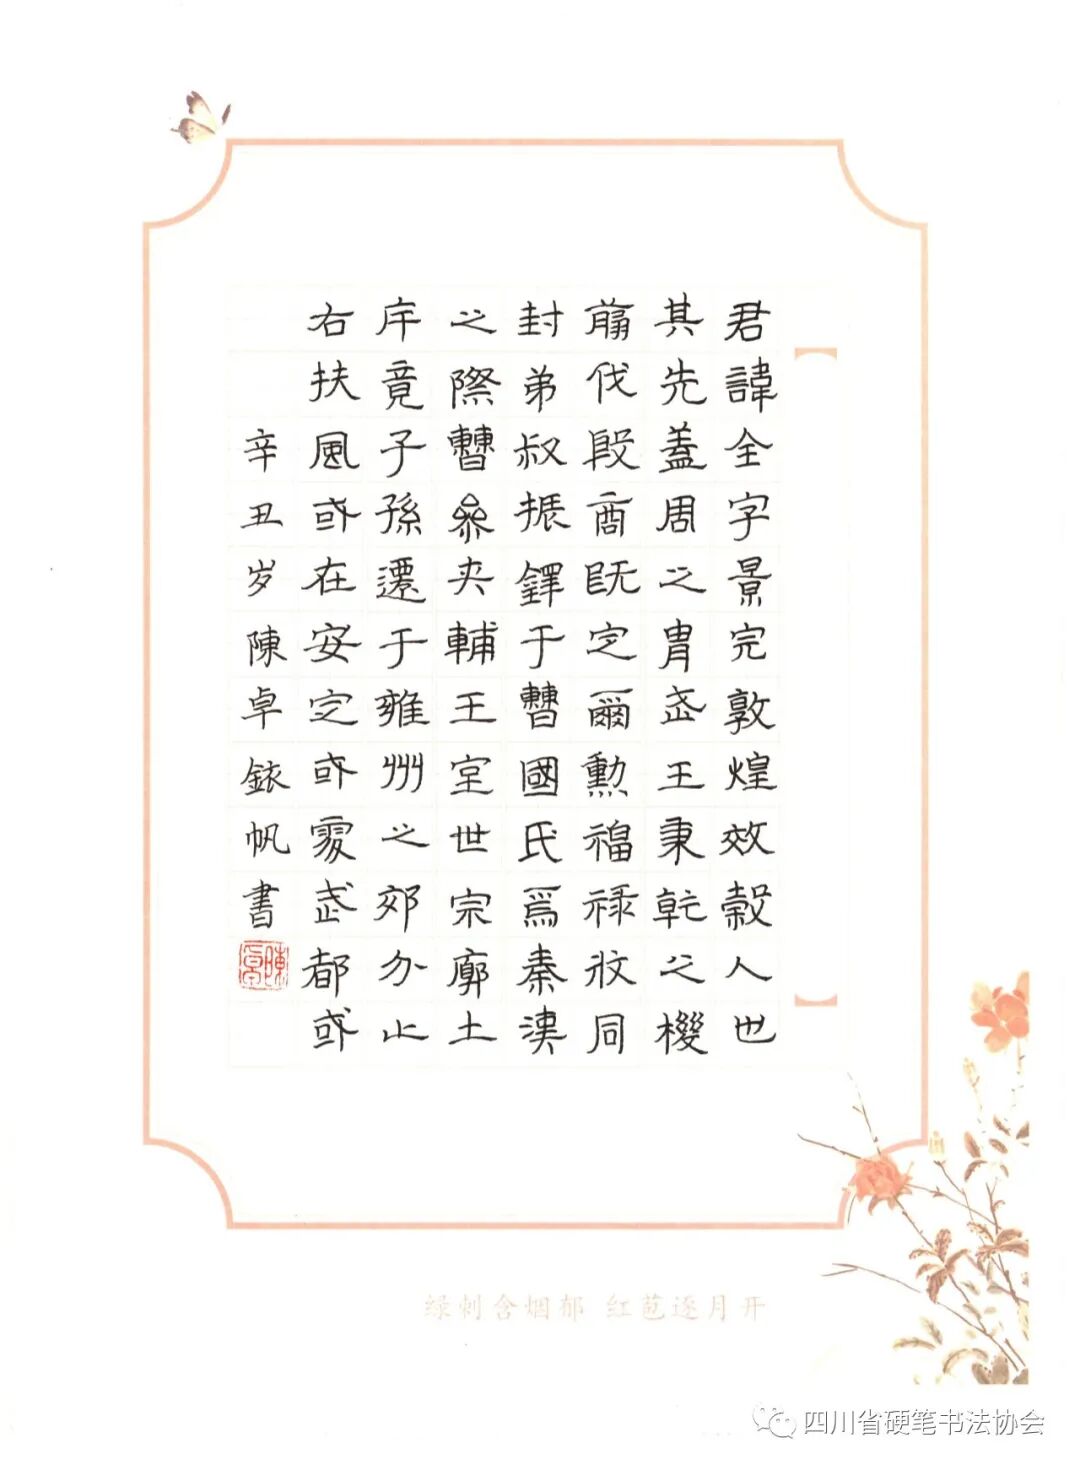 君諱全字景完敦煌效穀人也
其先蓋周之胄武王秉乾之機
翦伐殷商既定爾勲福禄攸同
封弟叔振鐸于曹國氏焉秦漢
之際曹參夹輔王室世宗廓土
斥竟子孫遷于雍州之郊分止
右扶風或在安定或處武都或
辛丑岁陳卓銥帆書
绿刺含烟郁 红苞逐月开
四川省硬笔书法协会